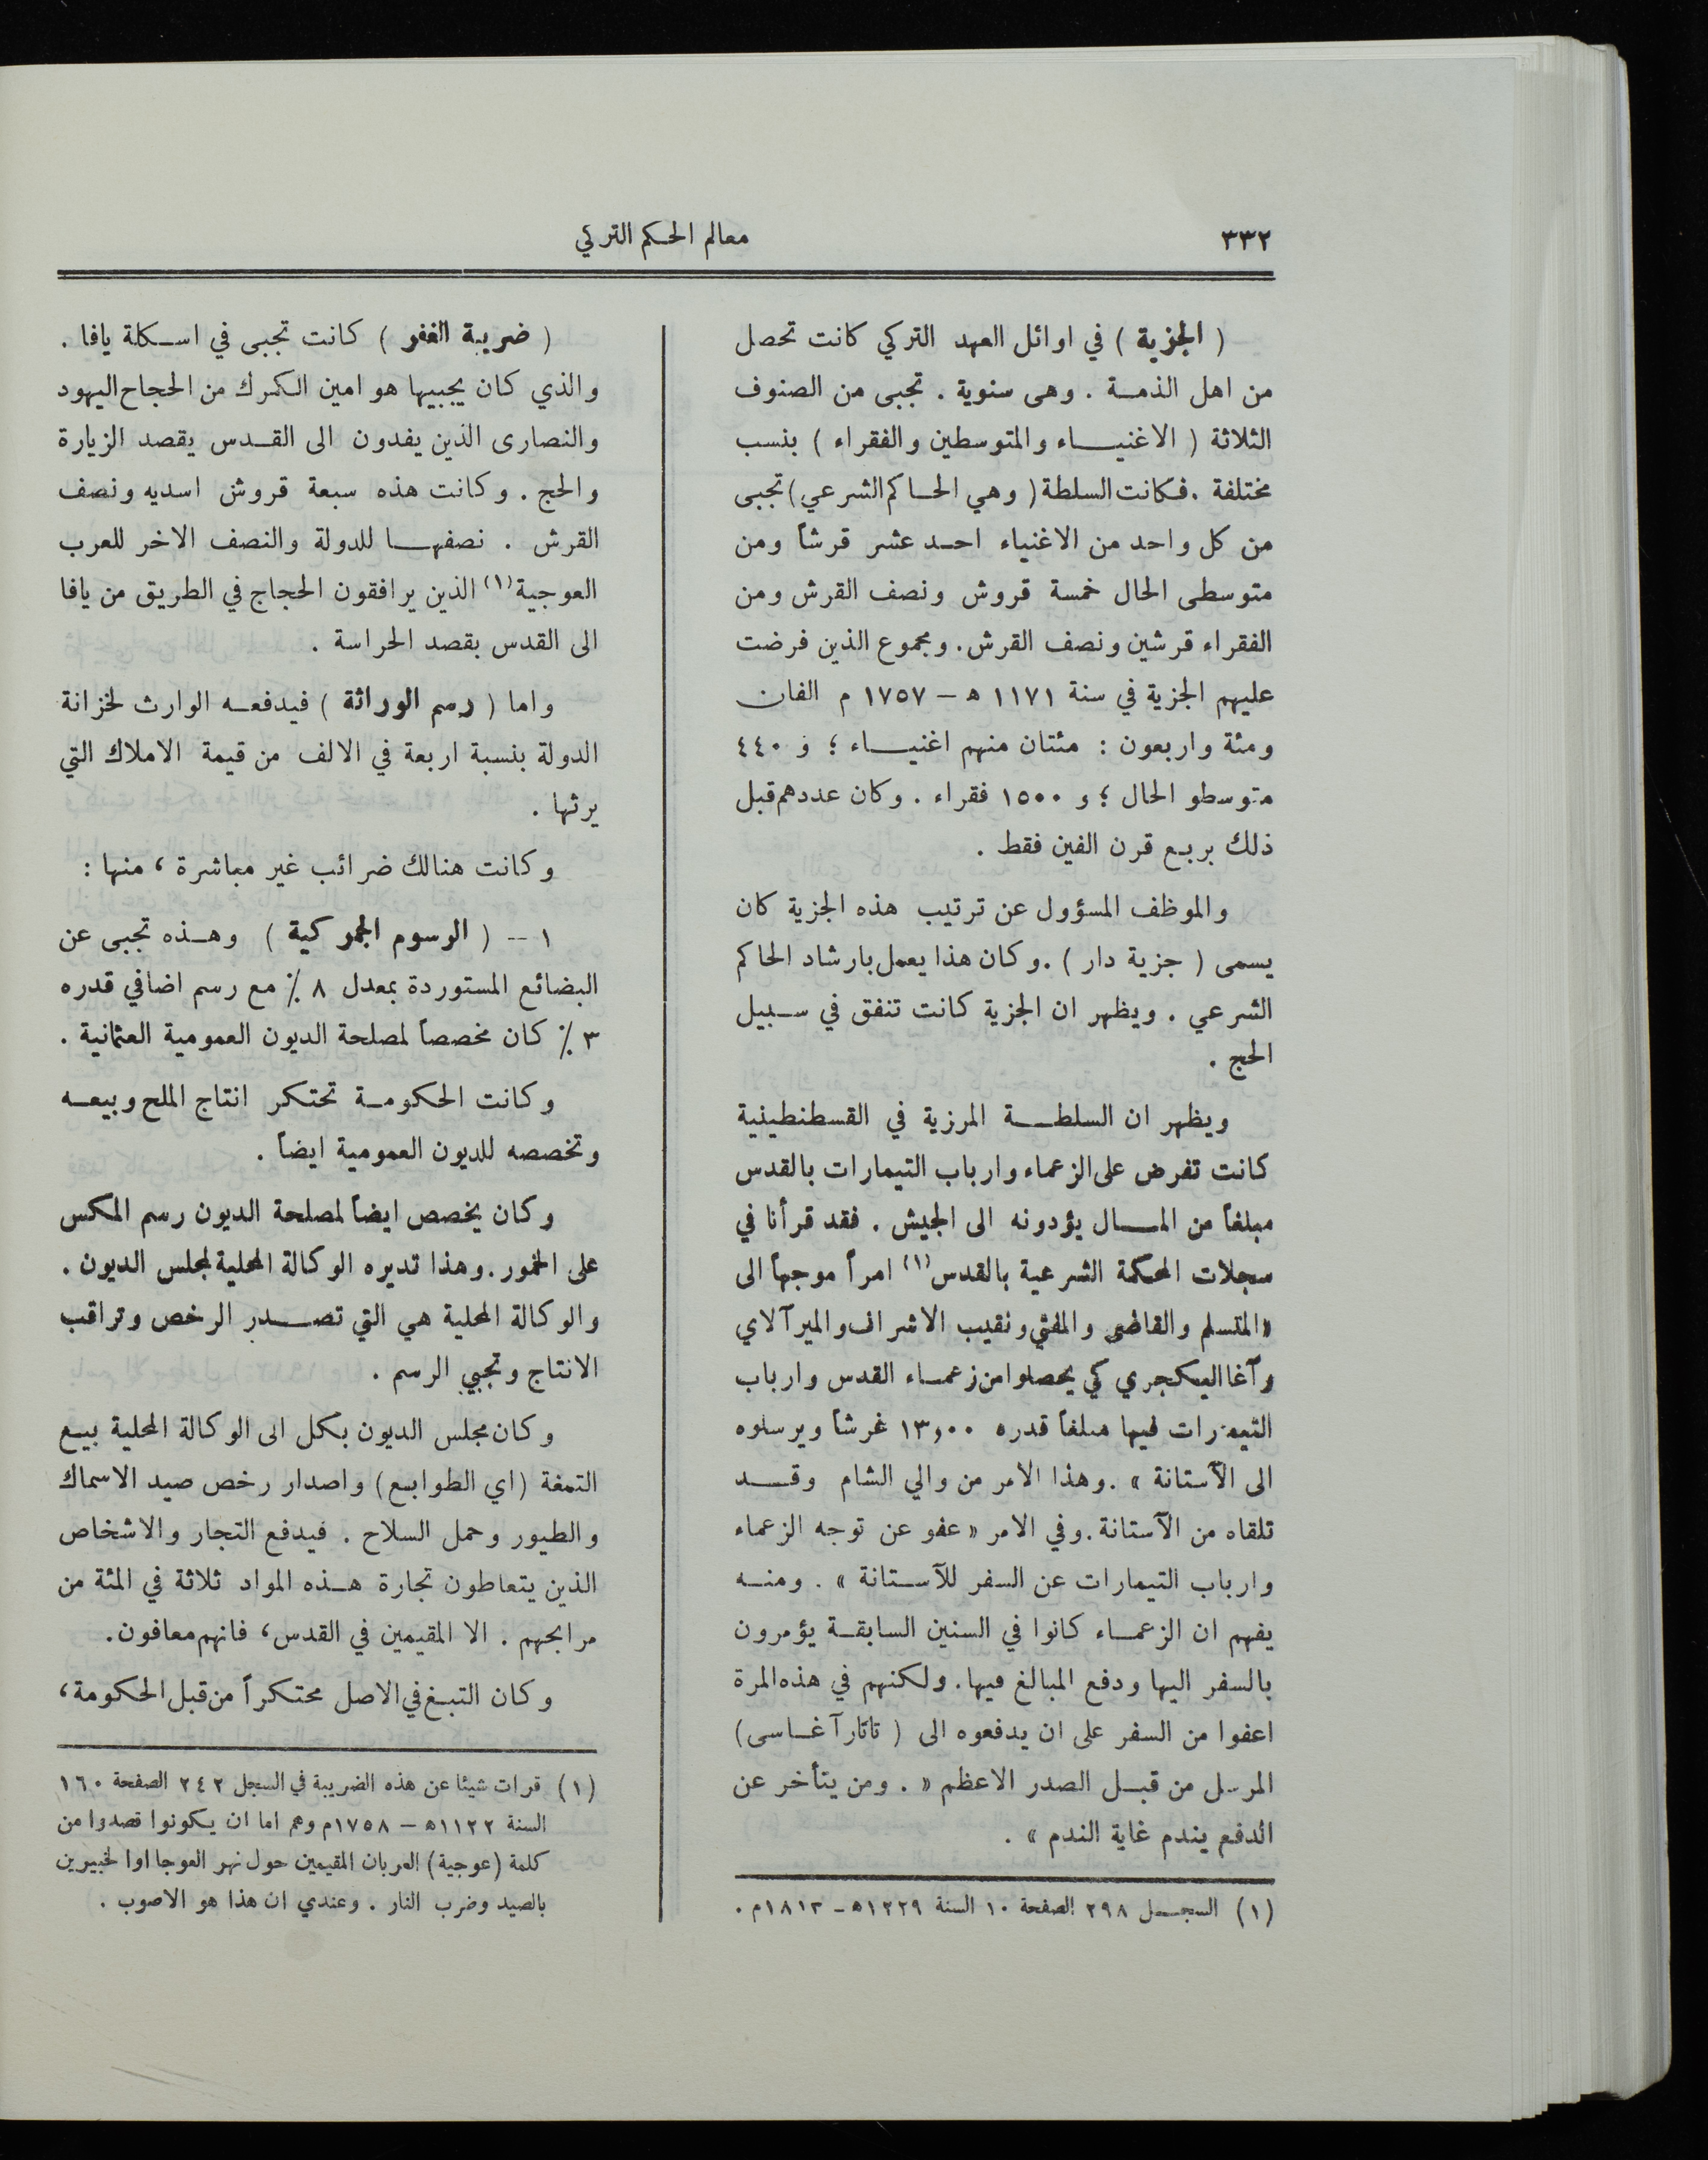 ٣٣٢
معالم الحكم التركي
( الجزية ) في اوائل العهد التركي كانت تحصل
من اهل الذمة . وهى سنوية . تجبى من الصنوف
الثلاثة ( الاغنياء والمتوسطين والفقراء ) بنسب
مختلفة . فكانت السلطة ( وهي الحاكم الشرعي ) تجبى
من كل واحد من الاغنياء احد عشر قرشاً ومن
متوسطى الحال خمسة قروش ونصف القرش ومن
الفقراء قرشين ونصف القرش. ومجموع الذين فرضت
عليهم الجزية في سنة ١١٧١ ه – ١٧٥٧ م الفان
ومئة واربعون : مئتان منهم اغنياء ؛ و ٤٤٠
متوسطو الحال ؛ و ١٥٠٠ فقراء . وكان عددهم قبل
ذلك بربع قرن الفين فقط .
والموظف المسؤول عن ترتيب هذه الجزية كان
يسمى ( جزية دار ) . وكان هذا يعمل بارشاد الحاكم
الشرعي . ويظهر ان الجزية كانت تنفق في سبيل
الحج .
ويظهر ان السلطة المرزية في القسطنطينية
كانت تفرض على الزعماء وارباب التيمارات بالقدس
مبلغاً من المال يؤدونه الى الجيش . فقد قرأنا في
سجلات المحكمة الشرعية بالقدس (١) امراً موجهاً الى
« المتسلم والقاضي والمفتي ونقيب الاشراف والمير آلاي
وآغا اليكجري كي يحصلوا من زعماء القدس وارباب
التيمارات فيها مبلغاً قدره ١٣,٠٠ غرشاً ويرسلوه
الى الآستانة » . وهذا الامر من والي الشام وقد
تلقاه من الآستانة . وفي الامر « عفو عن توجه الزعماء
وارباب التيمارات عن السفر للآستانة » . ومنه
يفهم ان الزعماء كانوا في السنين السابقة يؤمرون
بالسفر اليها ودفع المبالغ فيها. ولكنهم في هذه المرة
اعفوا من السفر على ان يدفعوه الى ( تاتار آغاسى )
المرسل من قبل الصدر الاعظم « . ومن يتأخر عن
الدفع يندم غاية الندم » .
(١) السجل ٢٩٨ الصفحة ١٠ السنة ١٢٢٩ه – ١٨١٣م .
( ضريبة الغفر ) كانت تجبى في اسكلة يافا .
والذي كان يجبيها هو امين الكمرك من الحجاح اليهود
والنصارى الذين يفدون الى القدس يقصد الزيارة
والحج . وكانت هذه سبعة قروش اسديه ونصف
القرش . نصفها للدولة والنصف الاخر للعرب
العوجية (١) الذين يرافقون الحجاج في الطريق من يافا
الى القدس بقصد الحراسة .
واما ( رسم الوراثة ) فيدفعه الوارث لخزانة
الدولة بنسبة اربعة في الالف من قيمة الاملاك التي
يرثها .
وكانت هنالك ضرائب غير مباشرة ، منها :
١ – ( الرسوم الجمركية ) وهذه تجبى عن
البضائع المستوردة بمعدل ٨ ٪ مع رسم اضافي قدره
٣ ٪ كان مخصصاً لمصلحة الديون العمومية العثمانية .
وكانت الحكومة تحتكر انتاج الملح وبيعه
وتخصصه للديون العمومية ايضاً .
وكان يخصص ايضاً لمصلحة الديون رسم المكس
على الخمور . وهذا تديره الوكالة المحلية لمجلس الديون .
والوكالة المحلية هي التي تصدر الرخص وتراقب
الانتاج وتجبي الرسم .
وكان مجلس الديون بكل الى الوكالة المحلية بيع
التمغة ( اي الطوابع ) واصدار رخص صيد الاسماك
والطيور وحمل السلاح . فيدفع التجار والاشخاص
الذين يتعاطون تجارة هذه المواد ثلاثة في المئة من
مرابحهم . الا المقيمين في القدس ، فانهم معافون.
وكان التبغ في الاصل محتكراً من قبل الحكومة ،
(١) قرات شيئا عن هذه الضريبة في السجل ٢٤٢ الصفحة ١٦٠
السنة ١١٢٢ه – ١٧٥٨م وهم اما ان يكونوا قصدوا من
كلمة (عوجية) العربان المقيمين حول نهر العوجا اوا لخبيرين
بالصيد وضرب النار . وعندي ان هذا هو الاصوب .